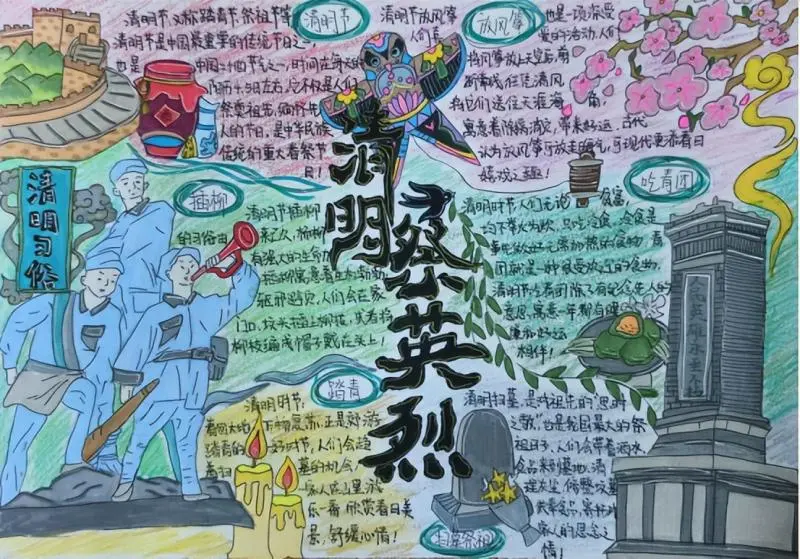 清明节
清明节,又称踏青节,祭祖节等
清明节是中国最重要的传统节日之一,
也是
中国二十四节气之一,时间在每年的
阳历4月5日左右,它不仅是人们
祭奠祖先,缅怀先
人的节日,是中华民族
传统的重大春祭节
日!
放风筝
清明节放风筝
也是一项深受
人们喜
爱的活动,人们
将风筝放上天空后,剪
断牵线,任凭清风
将它们送往天涯海角,
寓意着除病消灾,带来好运,古代
认为放风筝可放走晦气,可现代更有春日
嬉戏之趣!
清明祭英烈
清明习俗
插柳
清明节插柳
的习俗由
来已久,杨柳
有强大的生命力
驱邪避灾,人们会在家
门口,坟头插上柳枝,或者将
柳枝编成帽子戴在头上!
吃青团
清明时节,人们无论
贫富,
均不举火为炊,只吃冷食,冷食是
事先做好无需加热的食物,青
团就是一种很受欢迎的食物,
清明节吃青团除了有纪念先人的
意思,寓意一年都有
相伴!
人民英雄永垂不朽
踏青
清明时节,
春回大地
万物复苏,正是郊游
踏青的
好时节,人们会趁
着扫
墓的机会,
家人在山里游
乐一番,欣赏春日美
景,舒缓心情!
扫墓祭祖
清明扫墓,是对祖先的“思时
之敬”也是我国最大的祭
祖日子,人们会带着酒水,
食品来到墓地,清
理灰尘,修整坟墓
供奉食品,寄托对
家人的思念之
情!